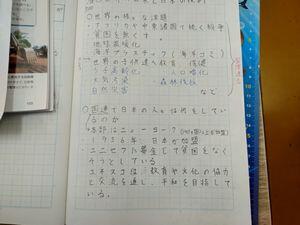 〇世界の様々な課題
・アフリカや中東諸国で続く戦争
・貧困を無くす。
・地球温暖化
・海洋プラスチック(海洋ゴミ)
・世界の子供達へ教育、復健
・少子高齢化 ・人口増化
・大気汚染 ・森林伐採
・自然災害 など
〇国連で日本の人々は何をしてい
るのか
・本部はニューヨーク
・1956年、日本が加盟
・ユニセフに募金して貧困をなく
そうとしている
・ユネスコは、教育や文化の協力
と交流を通し、平和を目指して
いる。